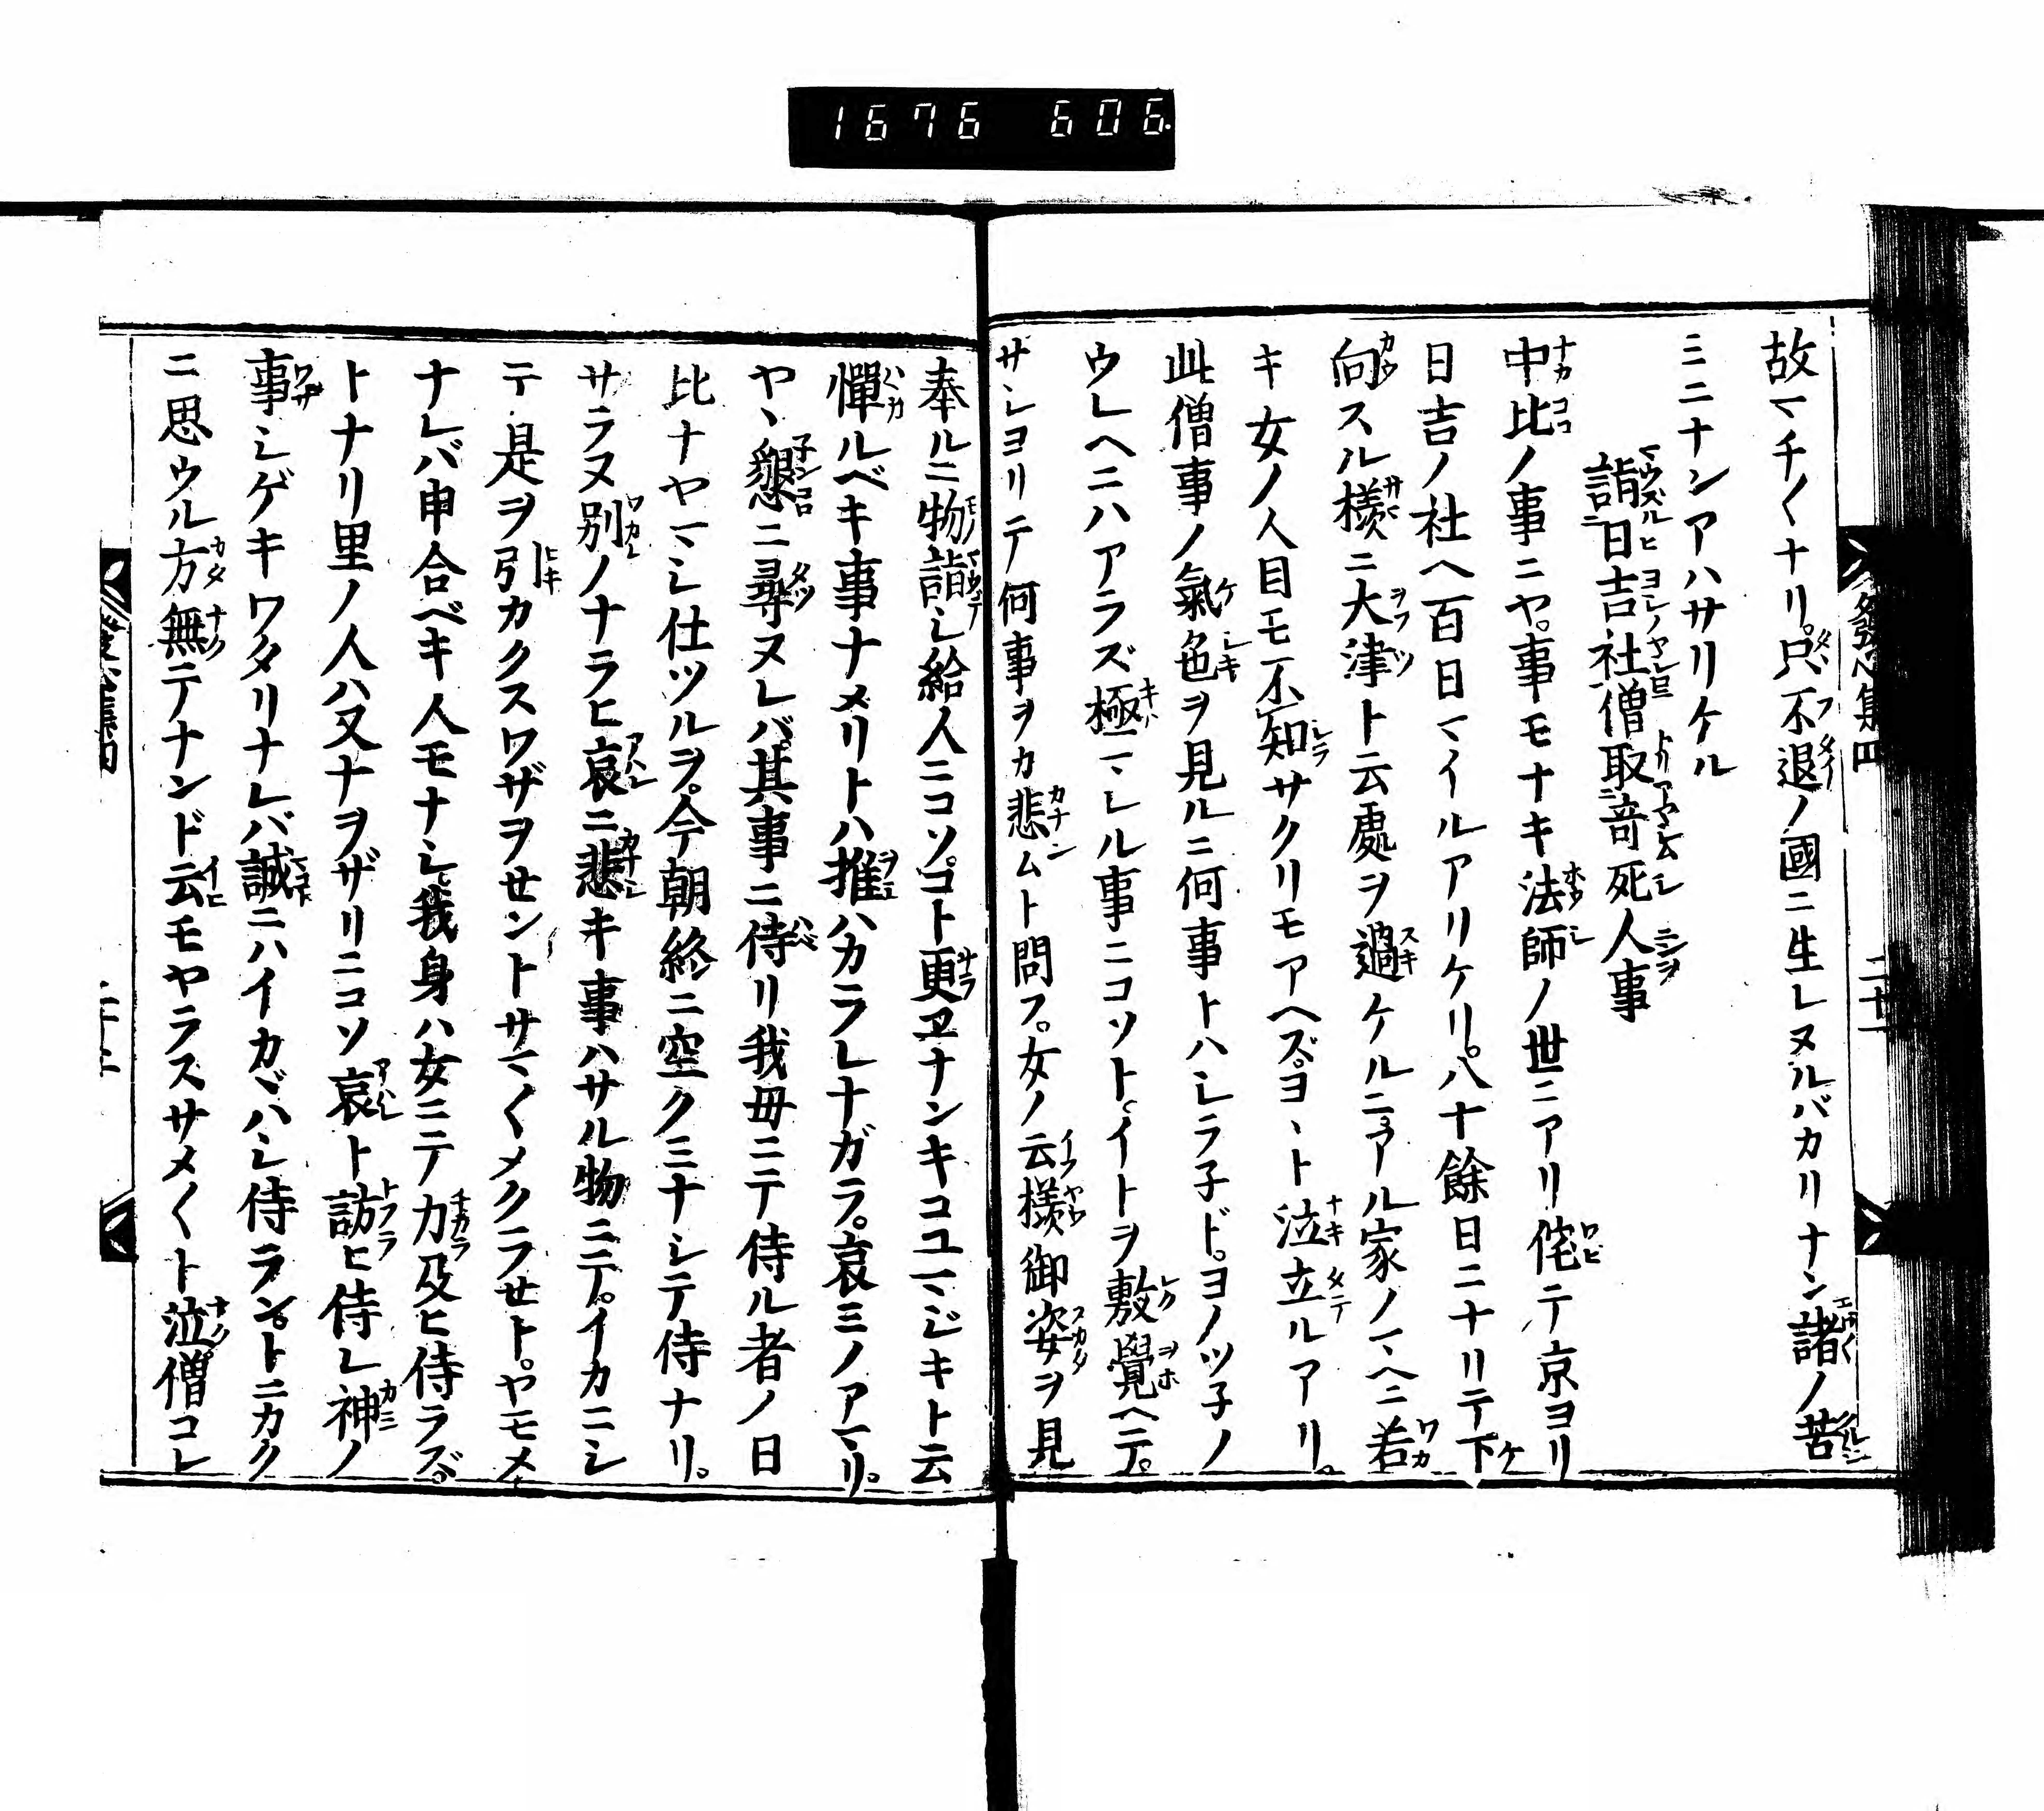 1676 606.
發心集四
二十一
故マチ〱ナリ。只不退ノ國ニ生レヌルバカリナン諸ノ苦
ミニナンアハサリケル
詣日吉社僧取奇死人事
中比ノ事ニヤ。事モナキ法師ノ世ニアリ侘テ京ヨリ
日吉ノ社ヘ百日マイルアリケリ。八十餘日ニナリテ下
向スル樣ニ大津ト云處ヲ過ケルニアル家ノマヘニ若
キ女ノ人目モ不知サクリモアヘズ。ヨヽト泣立ルアリ。
此僧事ノ氣色ヲ見ルニ何事トハシラ子ド。ヨノツ子ノ
ウレヘニハアラズ極マレル事ニコソト。イトヲ敷覺ヘテ。
サシヨリテ何事ヲカ悲ムト問フ。女ノ云樣御姿ヲ見
奉ルニ物詣シ給人ニコソ。コト更ヱナンキコユマジキト云
憚ルベキ事ナメリトハ推ハカラレナガラ。哀ミノアマリ。
ヤヽ懇ニ尋ヌレバ。其事ニ侍リ我母ニテ侍ル者ノ日
比ナヤマシ仕ツルヲ。今朝終ニ空クミナシテ侍ナリ。
サラヌ別ノナラヒ哀ニ悲キ事ハサル物ニテ。イカニシ
テ是ヲ引カクスワザヲセントサマ〱メクラセト。ヤモメ
ナレバ申合ベキ人モナシ。我身ハ女ニテ力及ヒ侍ラズ。
トナリ里ノ人ハ又ナヲザリニコソ哀ト訪ヒ侍レ神ノ
事シゲキワタリナレバ誠ニハイカヾハシ侍ラン。トニカク
ニ思ウル方無テナンド云モヤラスサメ〱ト泣。僧コレ